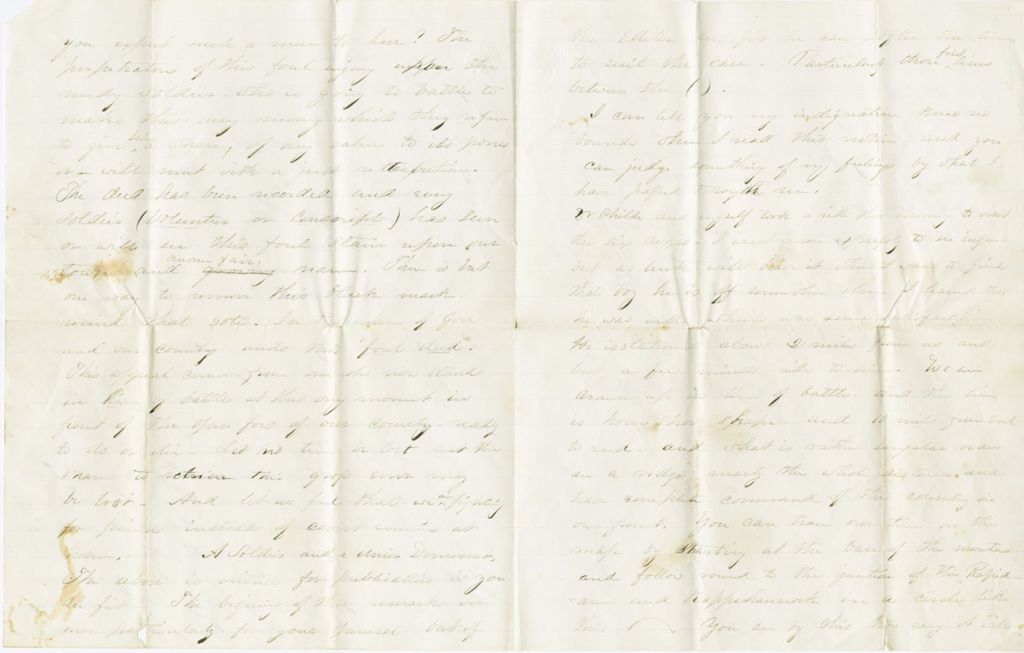 you expect such a man to have? The
perpetrators of this foul injury upon the
needy soldier who is going to battle to
make this very money which they refuse
to give him a share, of any value to its
will meet with a just retribution.
The deed has been recorded and every
soldier (Volunteer or Conscript) has seen
or will see this foul stain upon our
town and name. There is but
one way to remove this black mark.
resind that vote. In the name of God
and our country undo this "foul deed".
This appeal comes from one who now stands
in line of battle at this very moment in
front of the open foes of our country ready
to do or die. Let no time be lost
to this may
be lost. And let us feel that we are fighting
for friends instead of covert enemies at
home. A Soldier and a Union Democrat.
The above is written for publication if you
see fit. The begining of these remarks were
more particularly for your perusal but if
the Editor sees fit he can
to suit the case. Particularly those four lines
between the ( ).
I can tell you my indignation knew no
bounds when I read this notice and you
can judge something of my feelings by what I
have passed through me.
Dr Childs and myself took a ride this morning to visit
the six corps. I went to see Eugene
but as luck will have it when I want to find
that boy he is off some other place. I learned that
he was well which was some satisfaction.
He is stationed about 2 miles from us and
but a few minutes ride to him. We are
drawn up in line of battle and the line
is horse shoe shape and miles from end
to end. and what is rather singular we are
on a ridge nearly the whole distance and
have complete command of the country in
our front. You can trace our line on the
map by starting at the base of the mountain
and follow round to the junction of the Rapid-
-ann and Rappahannock in a circle like
this You see by this how easy it is